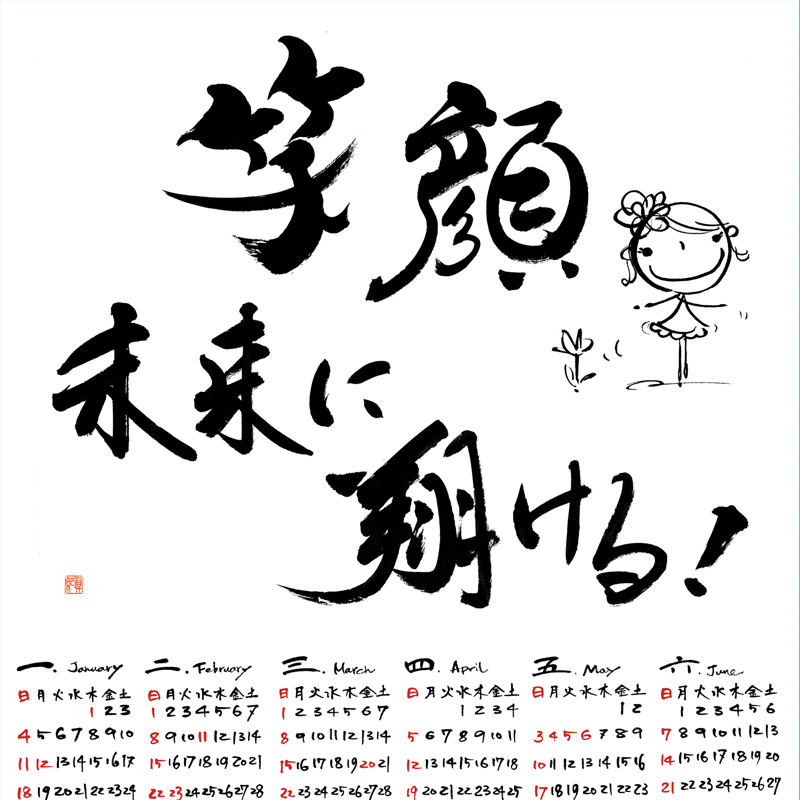 笑顔
未来に
翔ける!
一. January 二. February 三. March 四. April 五. May 六. June
日月火水木金土 日月火水木金土 日月火水木金土 日月火水木金土 日月火水木金土 日月火水木金土
1 2 3 1 2 3 4 5 6 7 1 2 3 4 5 6 7 1 2 3 4 1 2 1 2 3 4 5 6
4 5 6 7 8 9 10 8 9 10 11 12 13 14 8 9 10 11 12 13 14 5 6 7 8 9 10 11 3 4 5 6 7 8 9 7 8 9 10 11 12 13
11 12 13 14 15 16 17 15 16 17 18 19 20 21 15 16 17 18 19 20 21 12 13 14 15 16 17 18 10 11 12 13 14 15 16 14 15 16 17 18 19 20
18 19 20 21 22 23 24 22 23 24 25 26 27 28 22 23 24 25 26 27 28 19 20 21 22 23 24 25 17 18 19 20 21 22 23 21 22 23 24 25 26 27